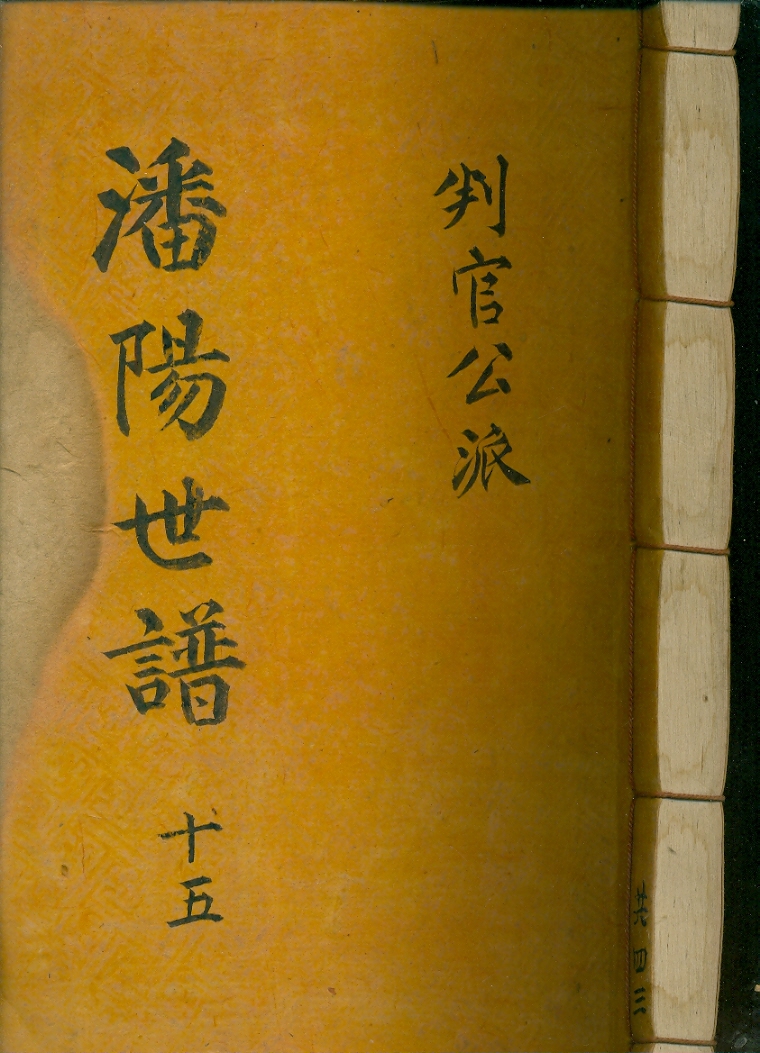 共四三
判官公派
潘陽世譜 十五